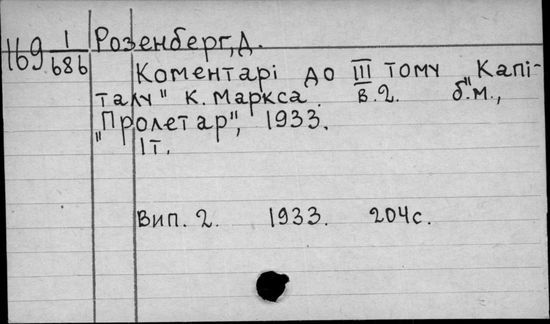 169 1/686
Розенберг, Д.
Коментарі до III тому „Капі-
талу" К. Маркса. В.2. б.м.,
„Пролетар", 1933.
1т.
Вип. 2. 1933. 204с.